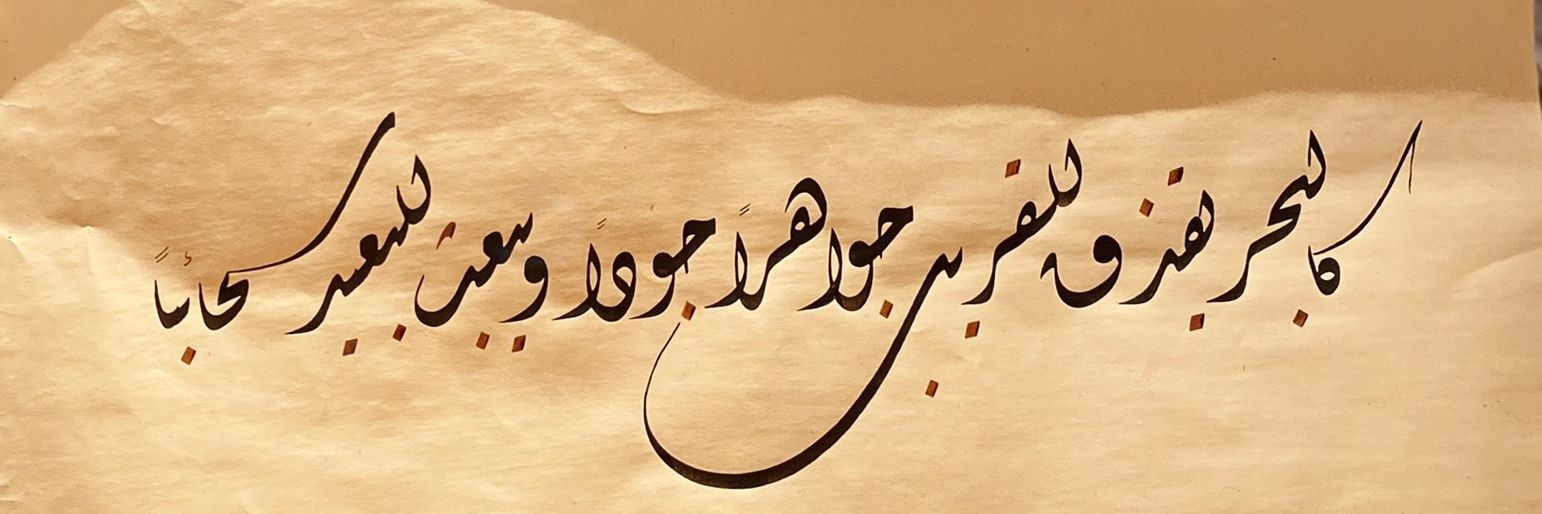 كالبحر يقذف للقريب جواهرًا جودًا ويبعث للبعيد سحائبًا